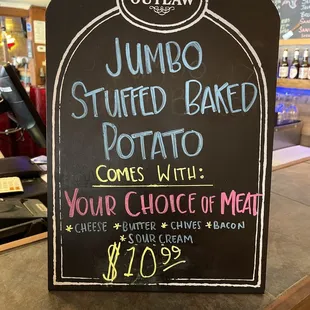 OUTLAW
JUMBO
STUFFED BAKED
POTATO
COMES WITH:
YOUR CHOICE OF MEAT
*CHEESE *BUTTER *CHIVES *BACON
*SOUR CREAM
$10.99